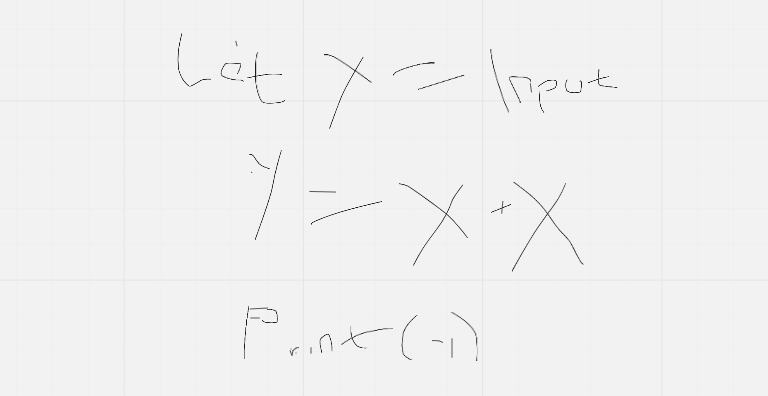 Let X = Input
Y = X + X
Print(-1)